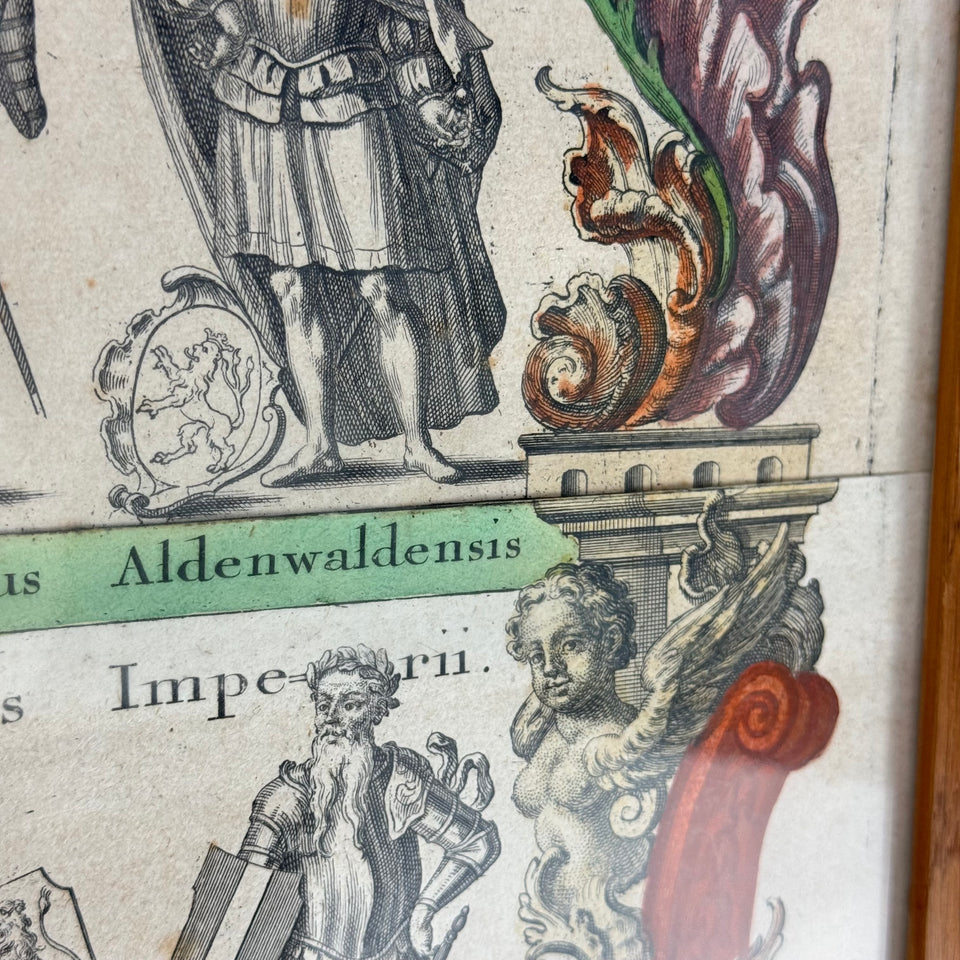 us Aldenwaldensis
s Impe=rii.